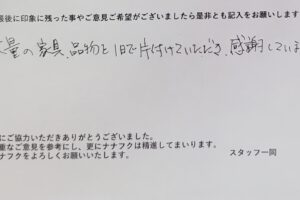 最後に印象に残った事やご意見ご希望がございましたら是非とも記入をお願いします
量の家具、品物を1日で片付けていただき、感謝していま
にご協力いただきありがとうございました。
重なご意見を参考にし、更にナナフクは精進してまいります。
ナフクをよろしくお願いいたします。
スタッフ一同